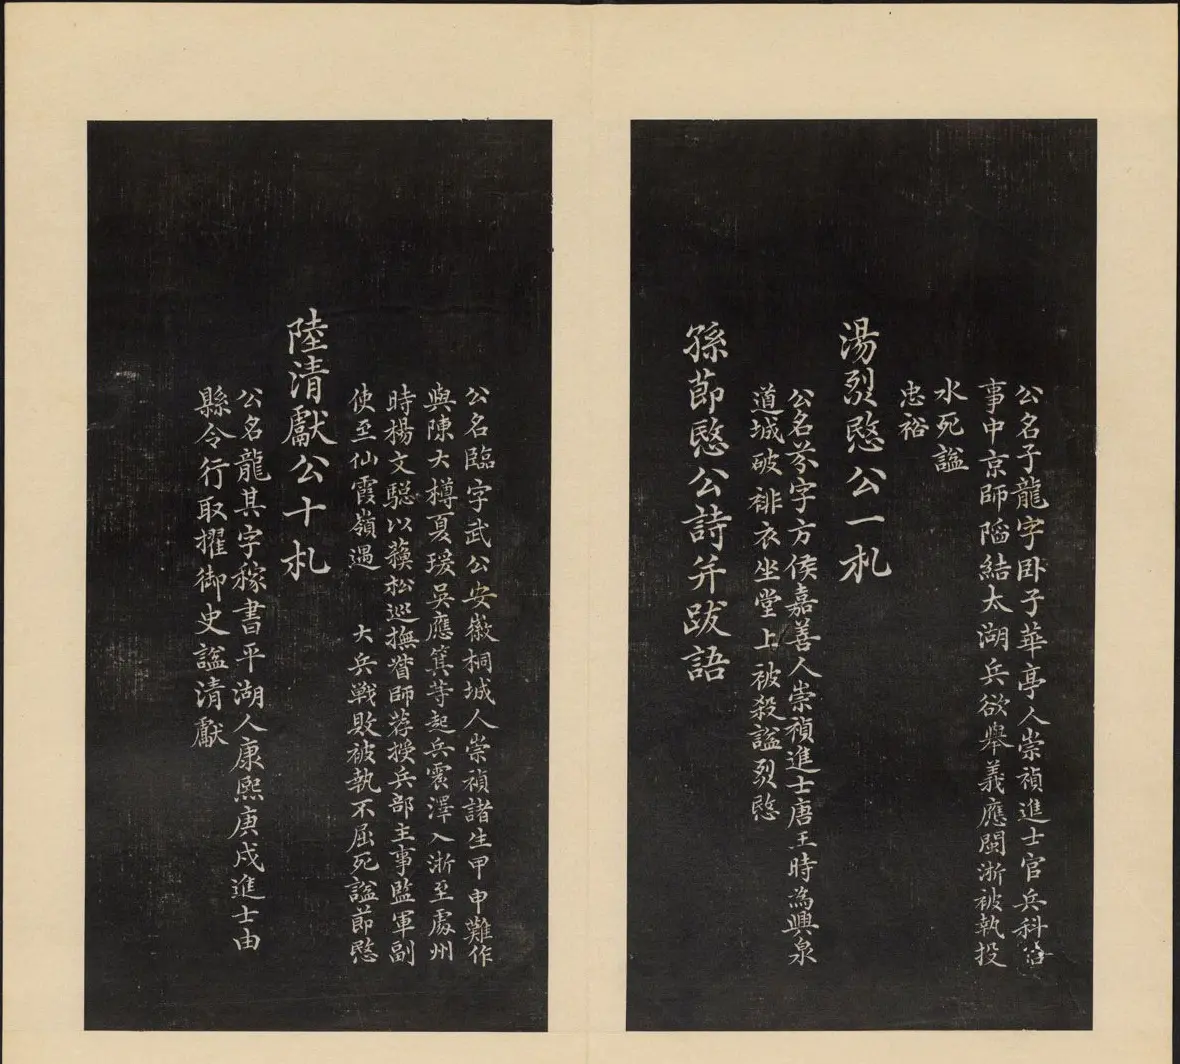 公名子龍字卧子華亭人崇禎進士官兵科給
事中京師陷結太湖兵欲舉義應閩浙被執投
水死謚
忠裕
湯烈愍公一札
公名芬字方侯嘉善人崇禎進士唐王時為興泉
道城破緋衣坐堂上被殺謚烈愍
孫節愍公詩并跋語
公名臨字武公安徽桐城人崇禎諸生甲申難作
與陳大樽夏瑗吳應箕等起兵震澤入浙至處州
時楊文驄以蘇松巡撫督師荐授兵部主事監軍副
使至仙霞嶺遇 大兵戰敗被執不屈死謚節愍
陸清獻公十札
公名龍其字稼書平湖人康熙庚戌進士由
縣令行取擢御史謚清獻